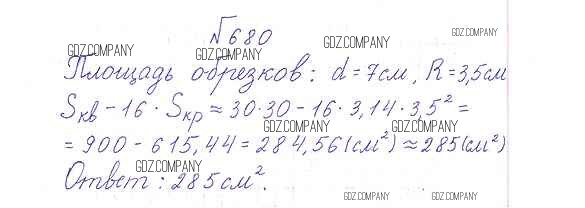 №680
GDZ.COMPANY GDZ.COMPANY GDZ.COMPANY GDZ.COMPANY
Площадь обрезков: d = 7см, R = 3,5см
GDZ.COMPANY GDZ.COMPANY
Sкв - 16 · Sкр ≈ 30·30 - 16·3,14·3,5² =
GDZ.COMPANY GDZ.COMPANY
= 900 - 615,44 = 284,56(см²) ≈ 285(см²)
GDZ.COMPANY
Ответ: 285см².
GDZ.COMPANY GDZ.COMPANY